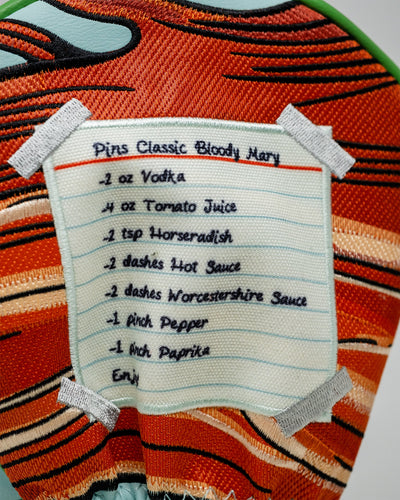 Pins Classic Bloody Mary
-2 oz Vodka
-4 oz Tomato Juice
-2 tsp Horseradish
-2 dashes Hot Sauce
-2 dashes Worcestershire Sauce
-1 pinch Pepper
-1 pinch Paprika